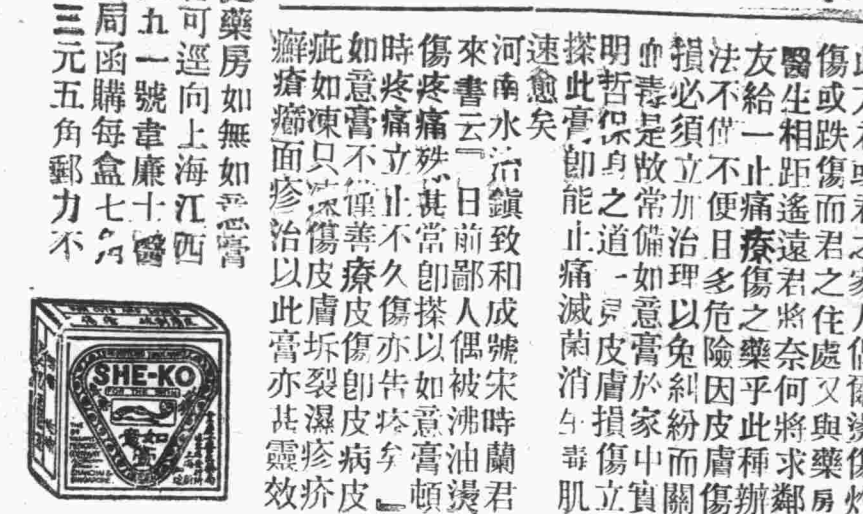 傷或跌傷而君之住處又與藥房
醫生相距遙遠君將奈何將求鄰
友給一止痛療傷之藥乎此種辦
法不僅不便且多危險因皮膚傷
損必須立加治理以免糾紛而關
血毒是故常備如意膏於家中實
明哲保身之道一見皮膚損傷立
搽此膏卽能止痛滅菌消毒肌
速愈矣
河南水冶鎭致和成號宋時蘭君
來書云『日前鄙人偶被沸油燙
傷疼痛殊甚當卽搽以如意膏頓
時疼痛立止不久傷亦告痊矣』
如意膏不僅善療皮傷卽皮病皮
疵如凍只凍傷皮膚坼裂濕疹疥
癬瘡癤面疹治以此膏亦甚靈效
藥房如無如意膏
可逕向上海江西
五一號韋廉士醫
局函購每盒七角
三元五角郵力不
SHE-KO
FOR THE SKIN
如意膏
SHANGHAI &
SINGAPORE